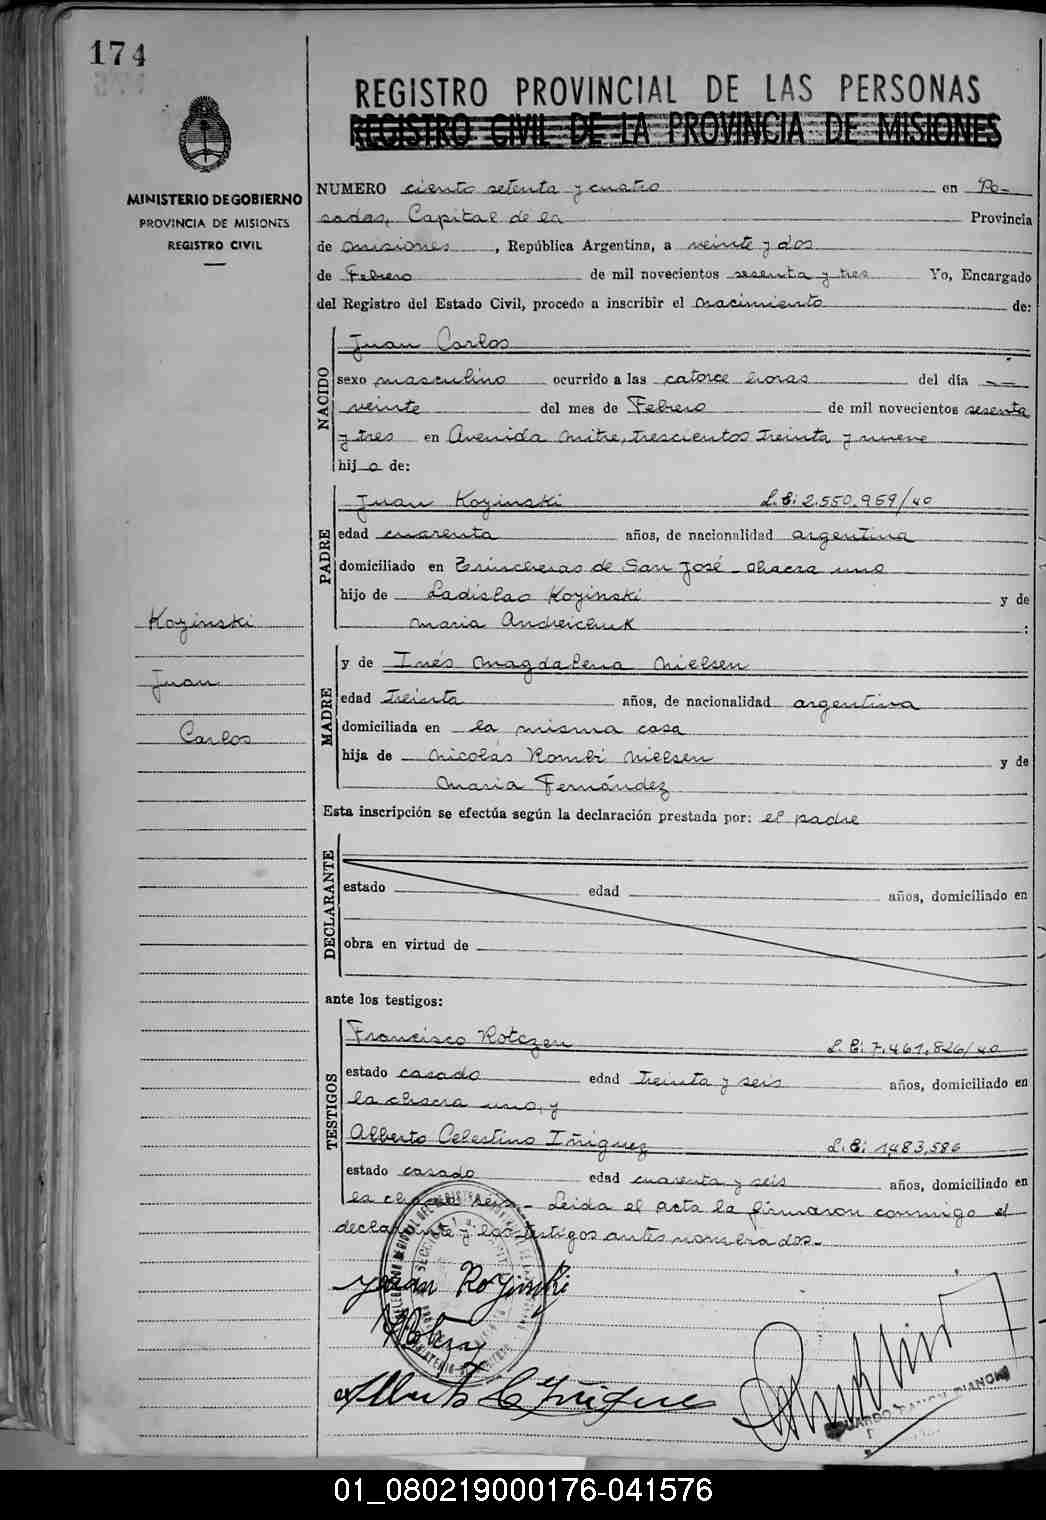 174
REGISTRO PROVINCIAL DE LAS PERSONAS
REGISTRO CIVIL DE LA PROVINCIA DE MISIONES
MINISTERIO DE GOBIERNO
PROVINCIA DE MISIONES
REGISTRO CIVIL
NUMERO ciento setenta y cuatro en Po-
sadas, Capital de la Provincia
de Misiones, República Argentina, a veinte y dos
de Febrero de mil novecientos sesenta y tres Yo, Encargado
del Registro del Estado Civil, procedo a inscribir el nacimiento de:
NACIDO
Juan Carlos
sexo masculino ocurrido a las catorce horas del día
veinte del mes de Febrero de mil novecientos sesenta
y tres en Avenida Mitre, trescientos treinta y nueve
hijo de:
PADRE
Juan Kozinski L.E: 2.550.959/40
edad cuarenta años, de nacionalidad argentina
domiciliado en Trincheras de San José chacra uno
hijo de Ladislao Kozinski y de
Maria Andreichuk :
Kozinski
Juan
Carlos
MADRE
y de Inés Magdalena Nielsen
edad treinta años, de nacionalidad argentina
domiciliada en la misma casa
hija de Nicolás Nielsen y de
Maria Fernández
Esta inscripción se efectúa según la declaración prestada por: el padre
DECLARANTE
estado edad años, domiciliado en
obra en virtud de
ante los testigos:
TESTIGOS
Francisco Rotczen L.E: 7.461.826/40
estado casado edad treinta y seis años, domiciliado en
la chacra uno, y
Alberto Celestino Iñiguez L.E: 1483,586
estado casado edad cuarenta y seis años, domiciliado en
la chacra seis - Leida el acta la firmaron conmigo el
declarante y los testigos antes nombrados.-
Juan Kozinski
Alberto C Iñiguez
01_080219000176-041576